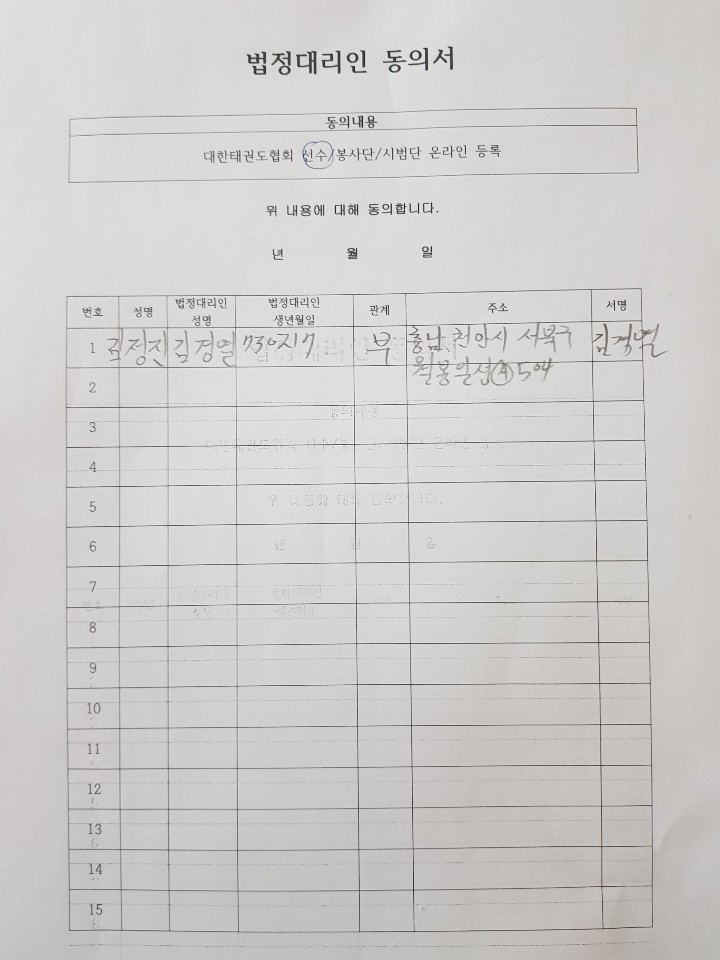 법정대리인 동의서
동의내용
대한태권도협회 선수/봉사단/시범단 온라인 등록
위 내용에 대해 동의합니다.
년 월 일
번호 성명 법정대리인 성명 법정대리인 생년월일 관계 주소 서명
1 김정진 김경열 730717 부 충남 천안시 서북구 김경열
월봉일성④504
2
3
4
5
6
7
8
9
10
11
12
13
14
15